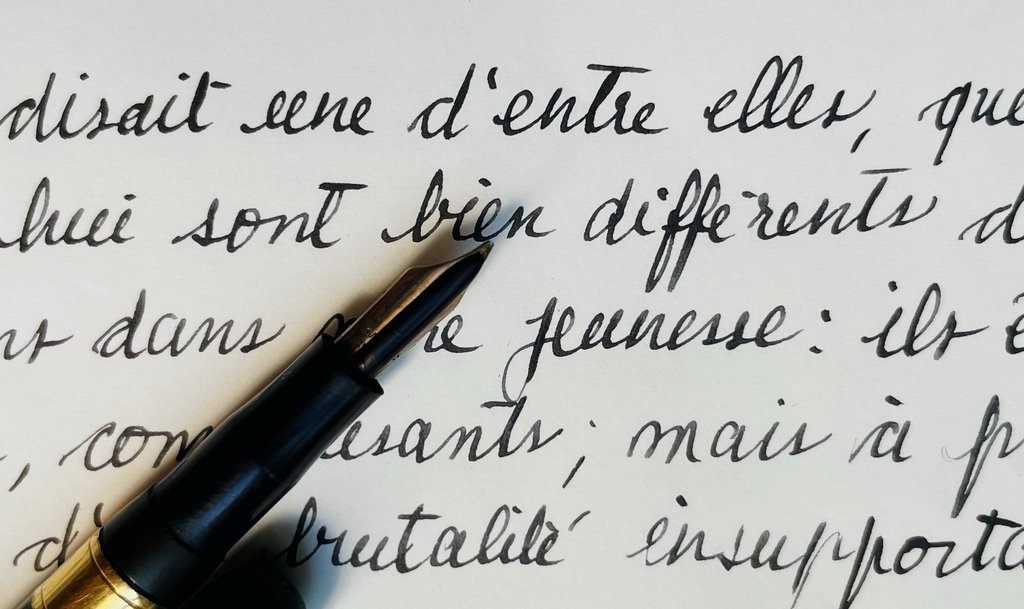 disait une d'entre elles, que
hui sont bien différents d
ns dans jeunesse : ils
, com esants ; mais à p
d' brutalité insupporta